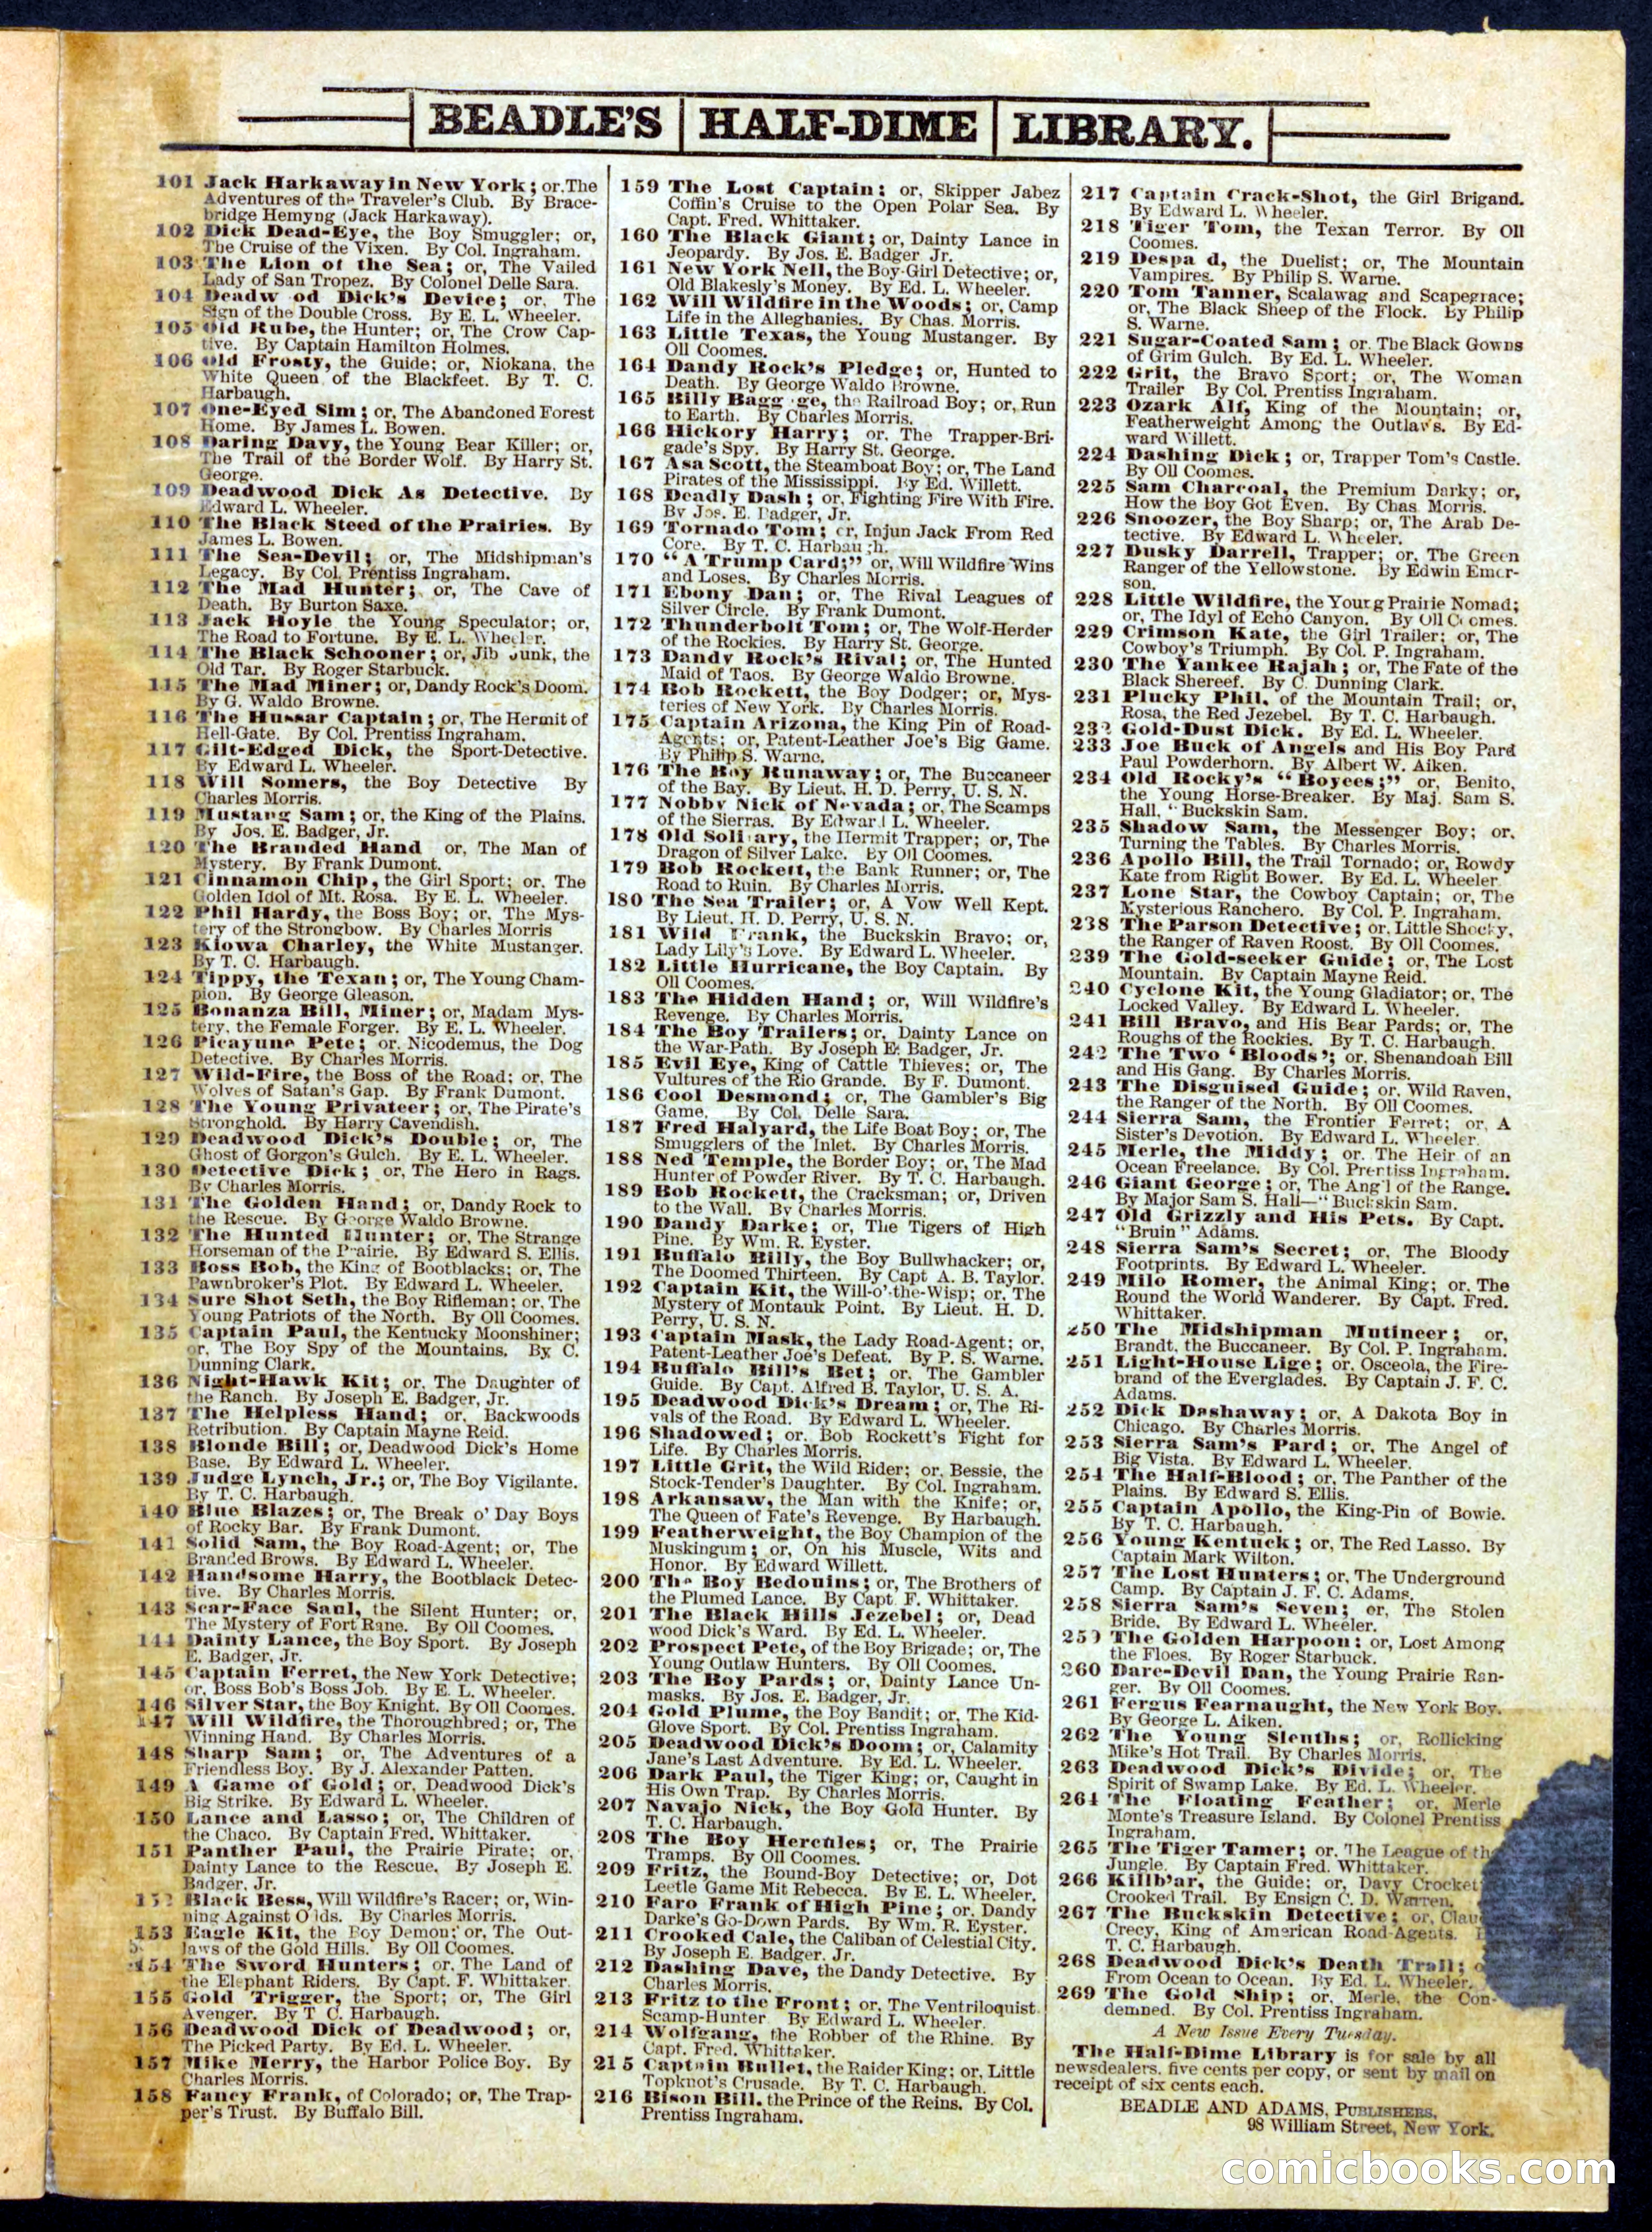 BEADLE'S HALF-DIME LIBRARY.
101 Jack Harkaway in New York; or, The
Adventures of the Traveler's Club. By Brace-
bridge Hemyng (Jack Harkaway).
102 Dick Dead-Eye, the Boy Smuggler; or,
The Cruise of the Vixen. By Col. Ingraham.
103 The Lion of the Sea; or, The Vailed
Lady of San Tropez. By Colonel Delle Sara.
104 Deadw od Dick's Device; or, The
Sign of the Double Cross. By E. L. Wheeler.
105 Old Rube, the Hunter; or, The Crow Cap-
tive. By Captain Hamilton Holmes.
106 Old Frosty, the Guide; or, Niokana, the
White Queen of the Blackfeet. By T. C.
Harbaugh.
107 One-Eyed Sim; or, The Abandoned Forest
Home. By James L. Bowen.
108 Daring Davy, the Young Bear Killer; or,
The Trail of the Border Wolf. By Harry St.
George.
109 Deadwood Dick As Detective. By
Edward L. Wheeler.
110 The Black Steed of the Prairies. By
James L. Bowen.
111 The Sea-Devil; or, The Midshipman's
Legacy. By Col. Prentiss Ingraham.
112 The Mad Hunter; or, The Cave of
Death. By Burton Saxe.
113 Jack Hoyle the Young Speculator; or,
The Road to Fortune. By E. L. Wheeler.
114 The Black Schooner; or, Jib Junk, the
Old Tar. By Roger Starbuck.
115 The Mad Miner; or, Dandy Rock's Doom.
By G. Waldo Browne.
116 The Hussar Captain; or, The Hermit of
Hell-Gate. By Col. Prentiss Ingraham.
117 Gilt-Edged Dick, the Sport-Detective.
By Edward L. Wheeler.
118 Will Somers, the Boy Detective By
Charles Morris.
119 Mustang Sam; or, the King of the Plains.
By Jos. E. Badger, Jr.
120 The Branded Hand or, The Man of
Mystery. By Frank Dumont.
121 Cinnamon Chip, the Girl Sport; or. The
Golden Idol of Mt. Rosa. By E. L. Wheeler.
122 Phil Hardy, the Boss Boy; or, The Mys-
tery of the Strongbow. By Charles Morris
123 Kiowa Charley, the White Mustanger.
By T. C. Harbaugh.
124 Tippy, the Texan; or, The Young Cham-
pion. By George Gleason.
125 Bonanza Bill, Miner; or, Madam Mys-
tery, the Female Forger. By E. L. Wheeler.
126 Picayune Pete; or. Nicodemus, the Dog
Detective. By Charles Morris.
127 Wild-Fire, the Boss of the Road; or, The
Wolves of Satan's Gap. By Frank Dumont.
128 The Young Privateer; or, The Pirate's
Stronghold. By Harry Cavendish.
129 Deadwood Dick's Double; or, The
Ghost of Gorgon's Gulch. By E. L. Wheeler.
130 Detective Dick; or, The Hero in Rags.
By Charles Morris.
131 The Golden Hand; or, Dandy Rock to
the Rescue. By George Waldo Browne.
132 The Hunted Hunter; or, The Strange
Horseman of the Prairie. By Edward S. Ellis.
133 Boss Bob, the King of Bootblacks; or, The
Pawnbroker's Plot. By Edward L. Wheeler.
134 Sure Shot Seth, the Boy Rifleman; or, The
Young Patriots of the North. By Oll Coomes.
135 Captain Paul, the Kentucky Moonshiner;
or, The Boy Spy of the Mountains. By C.
Dunning Clark.
136 Night-Hawk Kit; or, The Daughter of
the Ranch. By Joseph E. Badger, Jr.
137 The Helpless Hand; or, Backwoods
Retribution. By Captain Mayne Reid.
138 Blonde Bill; or, Deadwood Dick's Home
Base. By Edward L. Wheeler.
139 Judge Lynch, Jr.; or, The Boy Vigilante.
By T. C. Harbaugh.
140 Blue Blazes; or, The Break o' Day Boys
of Rocky Bar. By Frank Dumont.
141 Solid Sam, the Boy Road-Agent; or, The
Branded Brows. By Edward L. Wheeler.
142 Handsome Harry, the Bootblack Detec-
tive. By Charles Morris.
143 Scar-Face Saul, the Silent Hunter; or,
The Mystery of Fort Rane. By Oll Coomes.
144 Dainty Lance, the Boy Sport. By Joseph
E. Badger, Jr.
145 Captain Ferret, the New York Detective;
or, Boss Bob's Boss Job. By E. L. Wheeler.
146 Silver Star, the Boy Knight. By Oll Coomes.
147 Will Wildfire, the Thoroughbred; or, The
Winning Hand. By Charles Morris.
148 Sharp Sam; or, The Adventures of a
Friendless Boy. By J. Alexander Patten.
149 A Game of Gold; or, Deadwood Dick's
Big Strike. By Edward L. Wheeler.
150 Lance and Lasso; or, The Children of
the Chaco. By Captain Fred. Whittaker.
151 Panther Paul, the Prairie Pirate; or,
Dainty Lance to the Rescue. By Joseph E.
Badger, Jr.
152 Black Bess, Will Wildfire's Racer; or, Win-
ning Against O ds. By Charles Morris.
153 Eagle Kit, the Boy Demon; or, The Out-
laws of the Gold Hills. By Oll Coomes.
154 The Sword Hunters; or, The Land of
the Elephant Riders. By Capt. F. Whittaker.
155 Gold Trigger, the Sport; or, The Girl
Avenger. By T C. Harbaugh.
156 Deadwood Dick of Deadwood; or,
The Picked Party. By Ed. L. Wheeler.
157 Mike Merry, the Harbor Police Boy. By
Charles Morris.
158 Fancy Frank, of Colorado; or, The Trap-
per's Trust. By Buffalo Bill.
159 The Lost Captain; or, Skipper Jabez
Coffin's Cruise to the Open Polar Sea. By
Capt. Fred. Whittaker.
160 The Black Giant; or, Dainty Lance in
Jeopardy. By Jos. E. Badger Jr.
161 New York Nell, the Boy-Girl Detective; or,
Old Blakesly's Money. By Ed. L. Wheeler.
162 Will Wildfire in the Woods; or, Camp
Life in the Alleghanies. By Chas. Morris.
163 Little Texas, the Young Mustanger. By
Oll Coomes.
164 Dandy Rock's Pledge; or, Hunted to
Death. By George Waldo Browne.
165 Billy Bagg ge, the Railroad Boy; or, Run
to Earth. By Charles Morris.
166 Hickory Harry; or. The Trapper-Bri-
gade's Spy. By Harry St. George.
167 Asa Scott, the Steamboat Boy; or, The Land
Pirates of the Mississippi. By Ed. Willett.
168 Deadly Dash; or, Fighting Fire With Fire.
By Jos. E. Badger, Jr.
169 Tornado Tom; or, Injun Jack From Red
Core. By T. C. Harbaugh.
170 "A Trump Card;" or, Will Wildfire Wins
and Loses. By Charles Morris.
171 Ebony Dan; or, The Rival Leagues of
Silver Circle. By Frank Dumont.
172 Thunderbolt Tom; or, The Wolf-Herder
of the Rockies. By Harry St. George.
173 Dandy Rock's Rival; or, The Hunted
Maid of Taos. By George Waldo Browne.
174 Bob Rockett, the Boy Dodger; or, Mys-
teries of New York. By Charles Morris.
175 Captain Arizona, the King Pin of Road-
Agents; or, Patent-Leather Joe's Big Game.
By Philip S. Warne.
176 The Boy Runaway; or, The Buccaneer
of the Bay. By Lieut. H. D. Perry, U. S. N.
177 Nobby Nick of Nevada; or, The Scamps
of the Sierras. By Edward L. Wheeler.
178 Old Soli ary, the Hermit Trapper; or, The
Dragon of Silver Lake. By Oll Coomes.
179 Bob Rockett, the Bank Runner; or, The
Road to Ruin. By Charles Morris.
180 The Sea Trailer; or, A Vow Well Kept.
By Lieut. H. D. Perry, U. S. N.
181 Wild Frank, the Buckskin Bravo; or,
Lady Lily's Love. By Edward L. Wheeler.
182 Little Hurricane, the Boy Captain. By
Oll Coomes.
183 The Hidden Hand; or, Will Wildfire's
Revenge. By Charles Morris.
184 The Boy Trailers; or, Dainty Lance on
the War-Path. By Joseph E. Badger, Jr.
185 Evil Eye, King of Cattle Thieves; or, The
Vultures of the Rio Grande. By F. Dumont.
186 Cool Desmond; or, The Gambler's Big
Game. By Col. Delle Sara.
187 Fred Halyard, the Life Boat Boy; or, The
Smugglers of the Inlet. By Charles Morris.
188 Ned Temple, the Border Boy; or, The Mad
Hunter of Powder River. By T. C. Harbaugh.
189 Bob Rockett, the Cracksman; or, Driven
to the Wall. By Charles Morris.
190 Dandy Darke; or, The Tigers of High
Pine. By Wm. R. Eyster.
191 Buffalo Billy, the Boy Bullwhacker; or,
The Doomed Thirteen. By Capt A. B. Taylor.
192 Captain Kit, the Will-o'-the-Wisp; or, The
Mystery of Montauk Point. By Lieut. H. D.
Perry, U. S. N.
193 Captain Mask, the Lady Road-Agent; or,
Patent-Leather Joe's Defeat. By P. S. Warne.
194 Buffalo Bill's Bet; or, The Gambler
Guide. By Capt. Alfred B. Taylor, U. S. A.
195 Deadwood Dick's Dream; or, The Ri-
vals of the Road. By Edward L. Wheeler.
196 Shadowed; or. Bob Rockett's Fight for
Life. By Charles Morris.
197 Little Grit, the Wild Rider; or, Bessie, the
Stock-Tender's Daughter. By Col. Ingraham.
198 Arkansaw, the Man with the Knife; or,
The Queen of Fate's Revenge. By Harbaugh.
199 Featherweight, the Boy Champion of the
Muskingum; or, On his Muscle, Wits and
Honor. By Edward Willett.
200 The Boy Bedouins; or, The Brothers of
the Plumed Lance. By Capt. F. Whittaker.
201 The Black Hills Jezebel; or, Dead
wood Dick's Ward. By Ed. L. Wheeler.
202 Prospect Pete, of the Boy Brigade; or, The
Young Outlaw Hunters. By Oll Coomes.
203 The Boy Pards; or, Dainty Lance Un-
masks. By Jos. E. Badger, Jr.
204 Gold Plume, the Boy Bandit; or, The Kid-
Glove Sport. By Col. Prentiss Ingraham.
205 Deadwood Dick's Doom; or, Calamity
Jane's Last Adventure. By Ed. L. Wheeler.
206 Dark Paul, the Tiger King; or, Caught in
His Own Trap. By Charles Morris.
207 Navajo Nick, the Boy Gold Hunter. By
T. C. Harbaugh.
208 The Boy Hercules; or, The Prairie
Tramps. By Oll Coomes.
209 Fritz, the Bound-Boy Detective; or, Dot
Leetle Game Mit Rebecca. By E. L. Wheeler.
210 Faro Frank of High Pine; or, Dandy
Darke's Go-Down Pards. By Wm. R. Eyster.
211 Crooked Cale, the Caliban of Celestial City.
By Joseph E. Badger, Jr.
212 Dashing Dave, the Dandy Detective. By
Charles Morris.
213 Fritz to the Front; or, The Ventriloquist
Scamp-Hunter By Edward L. Wheeler.
214 Wolfgang, the Robber of the Rhine. By
Capt. Fred. Whittaker.
215 Captain Bullet, the Raider King; or, Little
Topknot's Crusade. By T. C. Harbaugh.
216 Bison Bill, the Prince of the Reins. By Col.
Prentiss Ingraham.
217 Captain Crack-Shot, the Girl Brigand.
By Edward L. Wheeler.
218 Tiger Tom, the Texan Terror. By Oll
Coomes.
219 Despa d, the Duelist; or, The Mountain
Vampires. By Philip S. Warne.
220 Tom Tanner, Scalawag and Scapegrace;
or, The Black Sheep of the Flock. By Philip
S. Warne.
221 Sugar-Coated Sam; or. The Black Gowns
of Grim Gulch. By Ed. L. Wheeler.
222 Grit, the Bravo Sport; or, The Woman
Trailer By Col. Prentiss Ingraham.
223 Ozark Alf, King of the Mountain; or,
Featherweight Among the Outlaws. By Ed-
ward Willett.
224 Dashing Dick; or, Trapper Tom's Castle.
By Oll Coomes.
225 Sam Charcoal, the Premium Darky; or,
How the Boy Got Even. By Chas Morris.
226 Snoozer, the Boy Sharp; or, The Arab De-
tective. By Edward L. Wheeler.
227 Dusky Darrell, Trapper; or, The Green
Ranger of the Yellowstone. By Edwin Emer-
son.
228 Little Wildfire, the Young Prairie Nomad;
or, The Idyl of Echo Canyon. By Oll Coomes.
229 Crimson Kate, the Girl Trailer; or, The
Cowboy's Triumph. By Col. P. Ingraham.
230 The Yankee Rajah; or, The Fate of the
Black Shereef. By C. Dunning Clark.
231 Plucky Phil, of the Mountain Trail; or,
Rosa, the Red Jezebel. By T. C. Harbaugh.
232 Gold-Dust Dick. By Ed. L. Wheeler.
233 Joe Buck of Angels and His Boy Pard
Paul Powderhorn. By Albert W. Aiken.
234 Old Rocky's "Boyees;" or, Benito,
the Young Horse-Breaker. By Maj. Sam S.
Hall, "Buckskin Sam.
235 Shadow Sam, the Messenger Boy; or,
Turning the Tables. By Charles Morris.
236 Apollo Bill, the Trail Tornado; or, Rowdy
Kate from Right Bower. By Ed. L. Wheeler
237 Lone Star, the Cowboy Captain; or, The
Mysterious Ranchero. By Col. P. Ingraham.
238 The Parson Detective; or, Little Shocky,
the Ranger of Raven Roost. By Oll Coomes.
239 The Gold-seeker Guide; or, The Lost
Mountain. By Captain Mayne Reid.
240 Cyclone Kit, the Young Gladiator; or, The
Locked Valley. By Edward L. Wheeler.
241 Bill Bravo, and His Bear Pards; or, The
Roughs of the Rockies. By T. C. Harbaugh.
242 The Two 'Bloods'; or, Shenandoah Bill
and His Gang. By Charles Morris.
243 The Disguised Guide; or, Wild Raven,
the Ranger of the North. By Oll Coomes.
244 Sierra Sam, the Frontier Ferret; or, A
Sister's Devotion. By Edward L. Wheeler.
245 Merle, the Middy; or. The Heir of an
Ocean Freelance. By Col. Prentiss Ingraham.
246 Giant George; or, The Ang'l of the Range.
By Major Sam S. Hall—"Buckskin Sam.
247 Old Grizzly and His Pets. By Capt.
"Bruin" Adams.
248 Sierra Sam's Secret; or, The Bloody
Footprints. By Edward L. Wheeler.
249 Milo Romer, the Animal King; or. The
Round the World Wanderer. By Capt. Fred.
Whittaker.
250 The Midshipman Mutineer; or,
Brandt, the Buccaneer. By Col. P. Ingraham.
251 Light-House Lige; or, Osceola, the Fire-
brand of the Everglades. By Captain J. F. C.
Adams.
252 Dick Dashaway; or, A Dakota Boy in
Chicago. By Charles Morris.
253 Sierra Sam's Pard; or, The Angel of
Big Vista. By Edward L. Wheeler.
254 The Half-Blood; or, The Panther of the
Plains. By Edward S. Ellis.
255 Captain Apollo, the King-Pin of Bowie.
By T. C. Harbaugh.
256 Young Kentuck; or, The Red Lasso. By
Captain Mark Wilton.
257 The Lost Hunters; or, The Underground
Camp. By Captain J. F. C. Adams.
258 Sierra Sam's Seven; or, The Stolen
Bride. By Edward L. Wheeler.
259 The Golden Harpoon; or, Lost Among
the Floes. By Roger Starbuck.
260 Dare-Devil Dan, the Young Prairie Ran-
ger. By Oll Coomes.
261 Fergus Fearnaught, the New York Boy.
By George L. Aiken.
262 The Young Sleuths; or, Rollicking
Mike's Hot Trail. By Charles Morris.
263 Deadwood Dick's Divide; or, The
Spirit of Swamp Lake. By Ed. L. Wheeler.
264 The Floating Feather; or, Merle
Monte's Treasure Island. By Colonel Prentiss
Ingraham.
265 The Tiger Tamer; or, The League of the
Jungle. By Captain Fred. Whittaker.
266 Killb'ar, the Guide; or, Davy Crocket
Crooked Trail. By Ensign C. D. Warren.
267 The Buckskin Detective; or,
Crecy, King of American Road-Agents.
T. C. Harbaugh.
268 Deadwood Dick's Death Trail;
From Ocean to Ocean. By Ed. L. Wheeler.
269 The Gold Ship; or, Merle, the Con-
demned. By Col. Prentiss Ingraham.
A New Issue Every Tuesday.
The Half-Dime Library is for sale by all
newsdealers, five cents per copy, or sent by mail on
receipt of six cents each.
BEADLE AND ADAMS, PUBLISHERS,
98 William Street, New York.
comicbooks.com